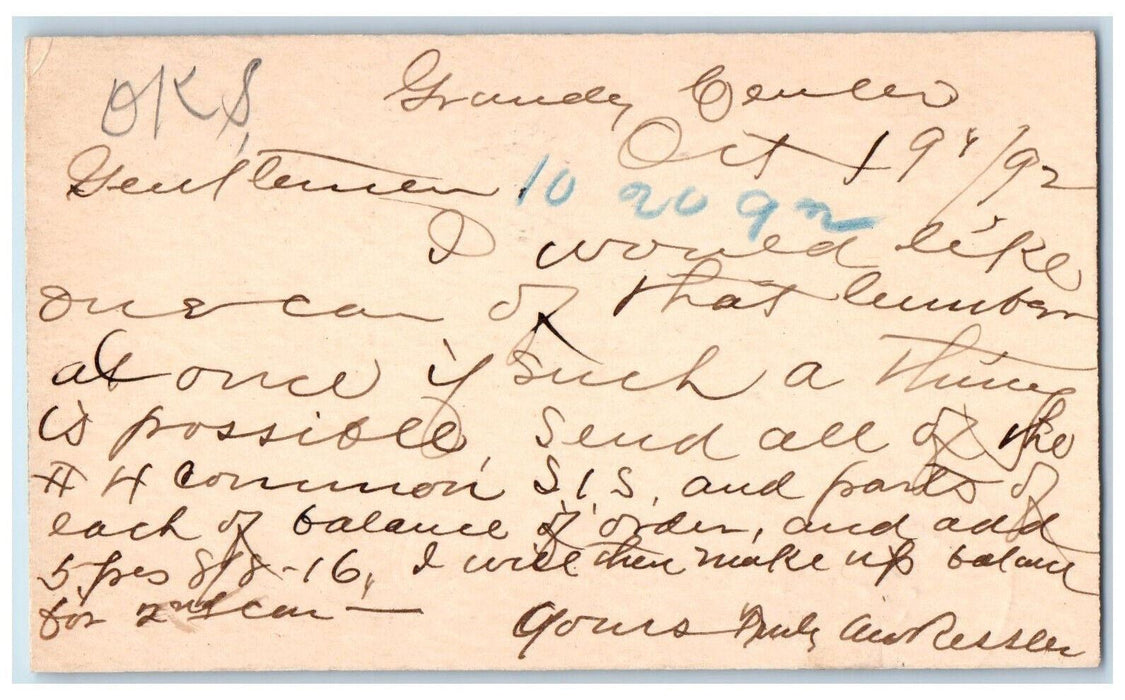 OKS
Grundy Center
Oct 19th/92
Gentlemen
10 20 92
I would like
one car of that lumber
at once if such a thing
is possible, Send all of the
# 4 common S1S, and parts of
each of balance of order, and add
5 pcs 8/8-16, I will then make up balance
for 2nd car —
Yours Truly Ressler